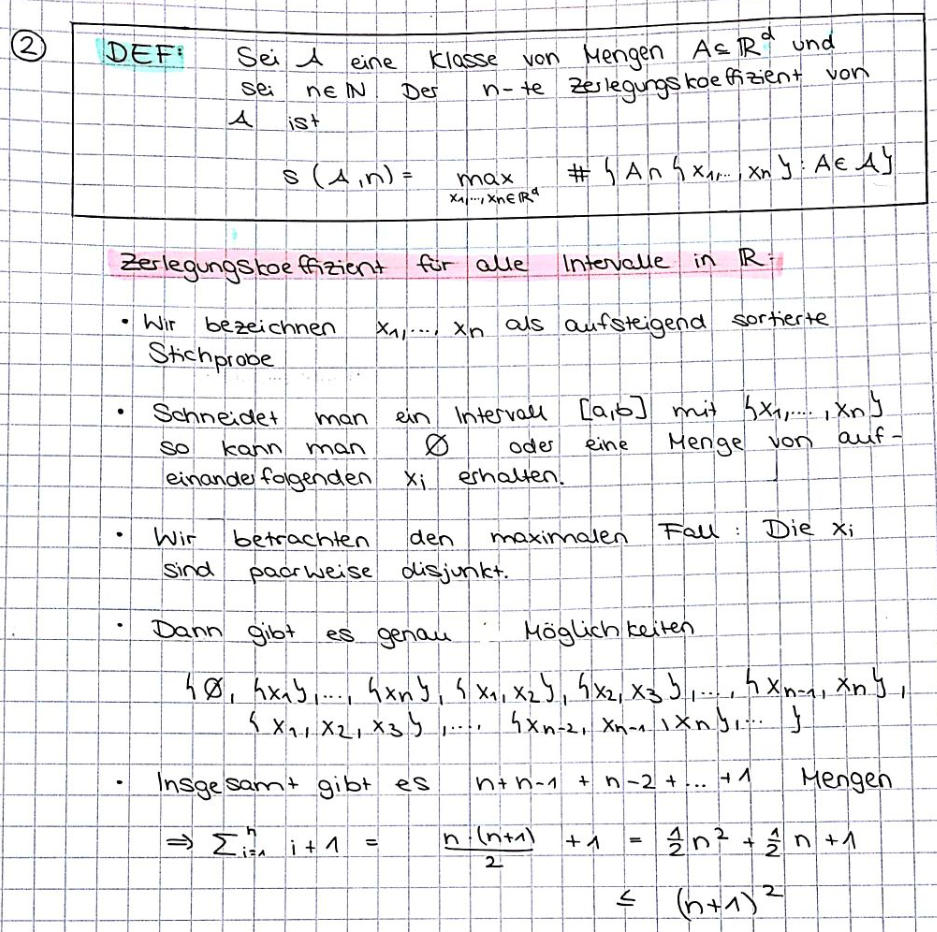 2
DEF: Sei 𝒜 eine Klasse von Mengen A ⊆ ℝ^d und
sei n∈ℕ Der n-te Zerlegungskoeffizient von
𝒜 ist
s(𝒜,n) = max_{x₁,...,xₙ∈ℝ^d} # {A ∩ {x₁,...,xₙ} : A ∈ 𝒜}
Zerlegungskoeffizient für alle Intervalle in ℝ:
• Wir bezeichnen x₁,..., xₙ als aufsteigend sortierte
Stichprobe
• Schneidet man ein Intervall [a,b] mit {x₁,...,xₙ}
so kann man ∅ oder eine Menge von auf-
einanderfolgenden xᵢ erhalten.
• Wir betrachten den maximalen Fall : Die xᵢ
sind paarweise disjunkt.
• Dann gibt es genau Möglichkeiten
{∅, {x₁},..., {xₙ}, {x₁, x₂}, {x₂, x₃},..., {xₙ₋₁, xₙ},
{x₁, x₂, x₃},.... {xₙ₋₂, xₙ₋₁, xₙ},... }
• Insgesamt gibt es n+n-1 + n-2 + ... +1 Mengen
⇒ ∑_{i=1}^{n} i + 1 = n·(n+1)/2 + 1 = ½n² + ½n + 1
≤ (n+1)²